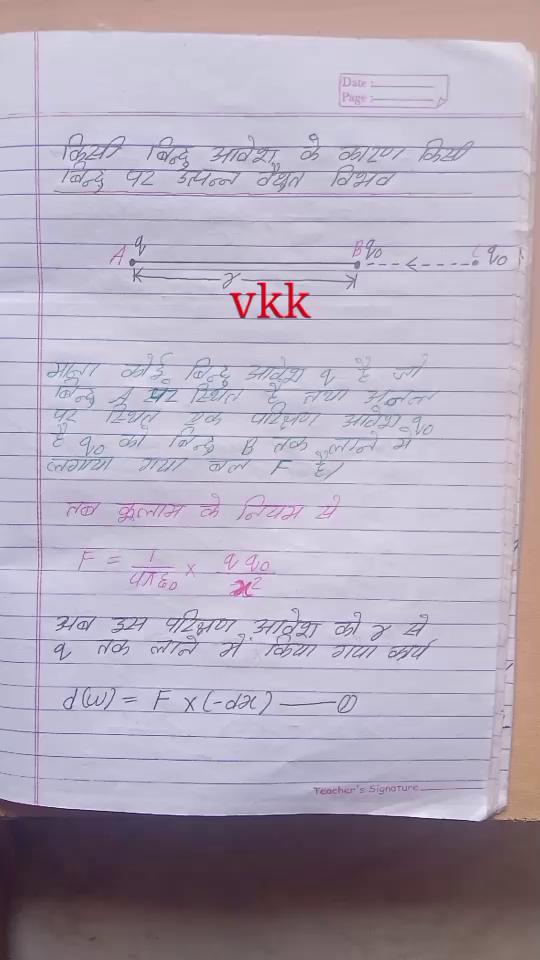 Date :
Page :
किसी बिन्दु आवेश के कारण किसी
बिन्दु पर उत्पन्न वैधुत विभव
A q B q₀ C q₀
r
vkk
माना कोई बिन्दु आवेश q है जो
बिन्दु A पर स्थित है तथा अनन्त
पर स्थित एक परिक्षण आवेश q₀
है q₀ को बिन्दु B तक लाने में
लगाया गया बल F है।
तब कूलाम के नियम से
F = 1/4πε₀ × q q₀/x²
अब इस परिक्षण आवेश को r से
q तक लाने में किया गया कार्य
d(w) = F × (-dx) —— ①
Teacher's Signature